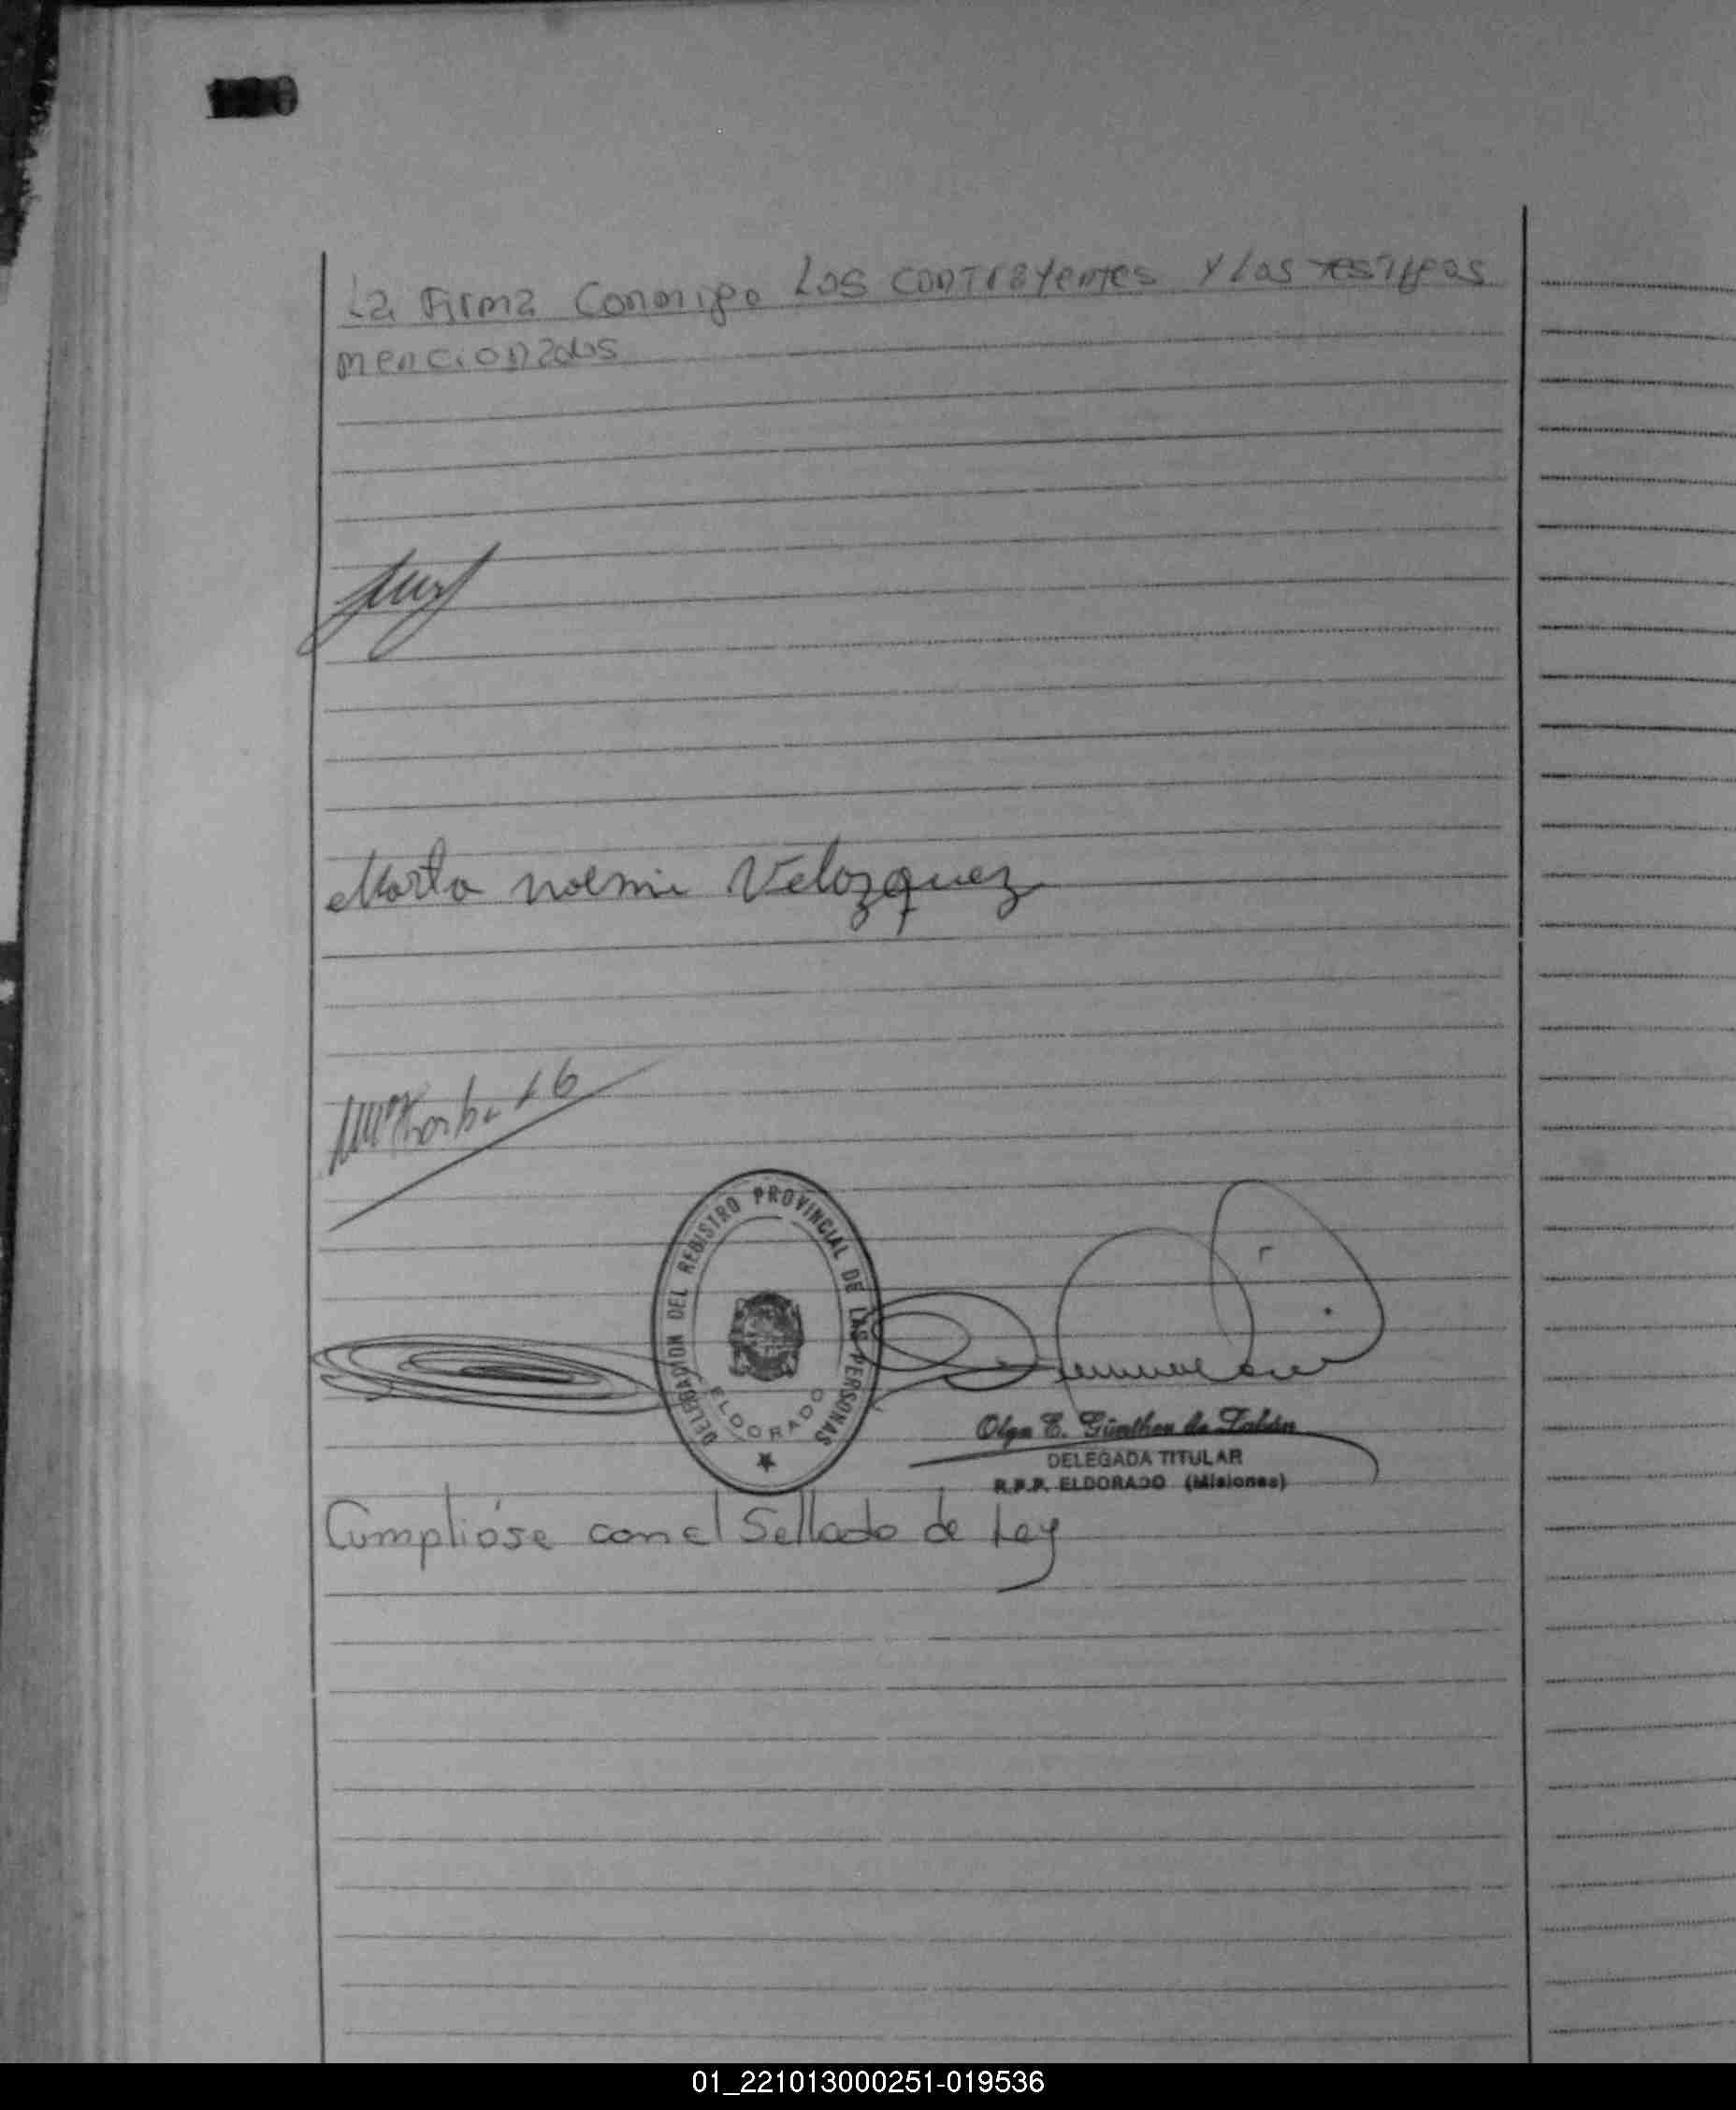 La Firma Conmigo Los contrayentes y Los testigos
mencionados
Marta noemi Velazquez
DELEGACION DEL REGISTRO PROVINCIAL DE LAS PERSONAS
ELDORADO
Olga E. Günther de
DELEGADA TITULAR
R.P.P. ELDORADO (Misiones)
Cumplióse con el Sellado de Ley
01_221013000251-019536